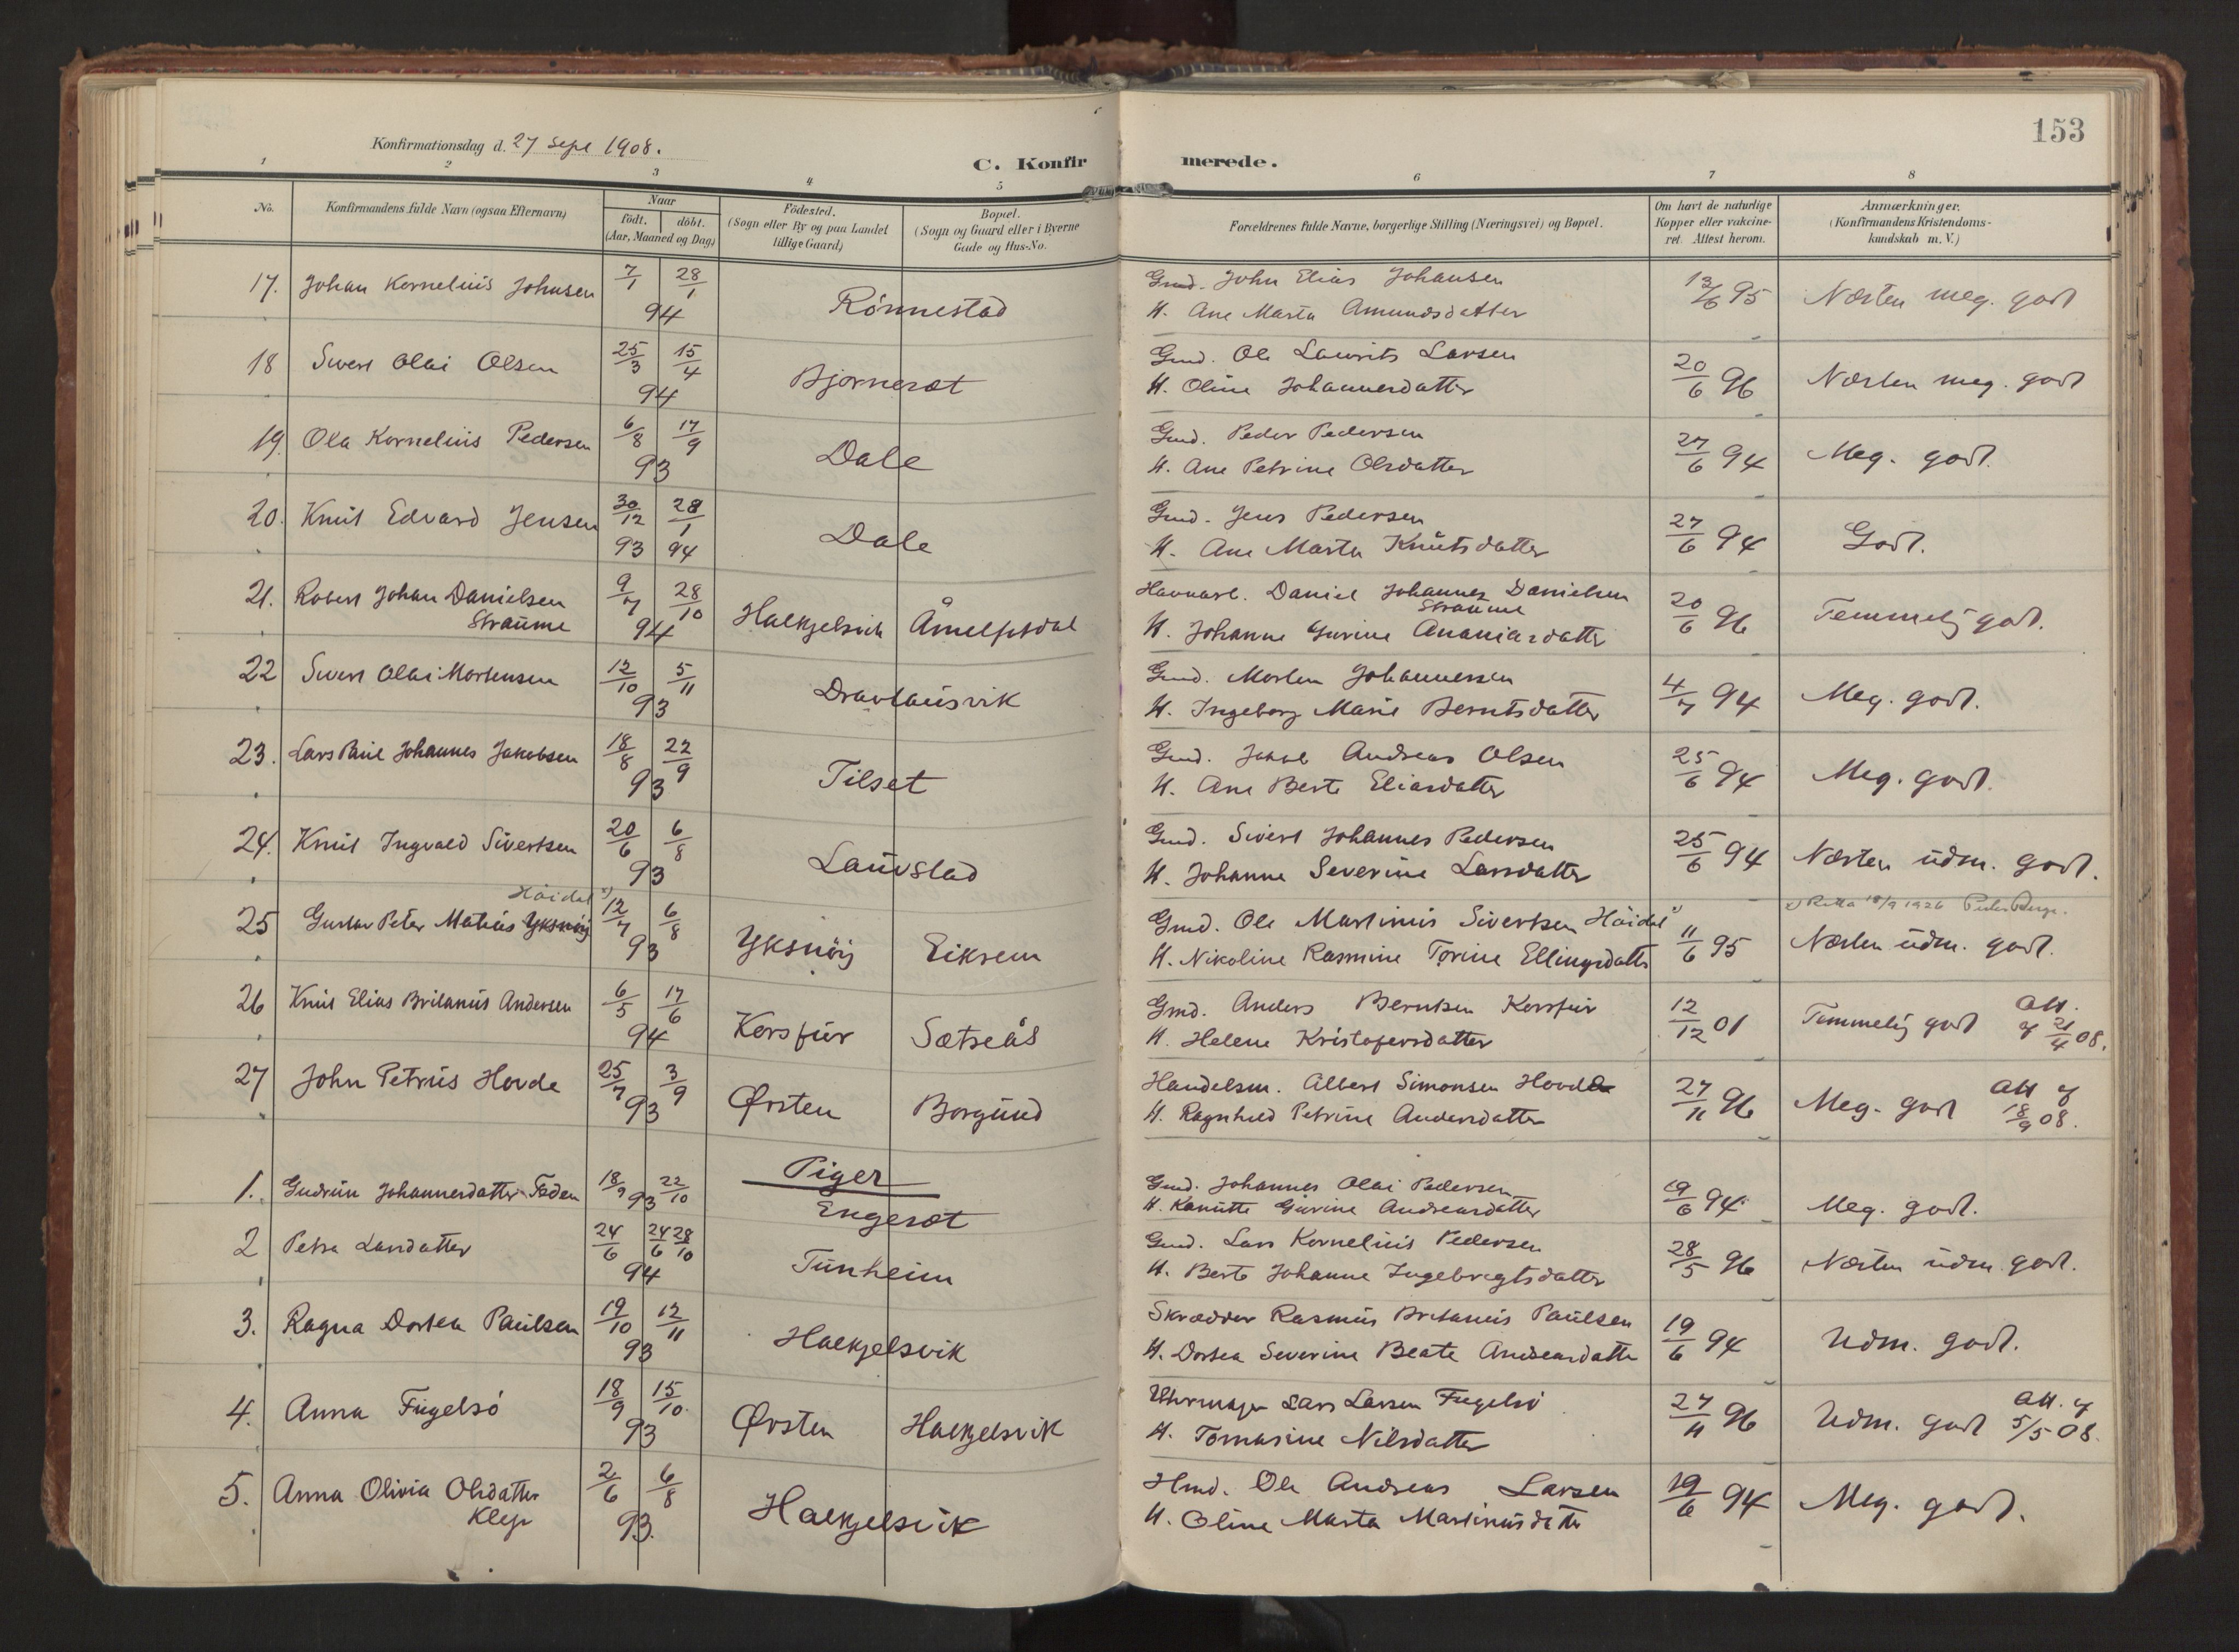 153
Konfirmationsdag d. 27 Sept 1908.
C. Konfirmerede.
1 2 3 4 5 6 7 8
No.
Konfirmandens fulde Navn (ogsaa Efternavn)
Naar
født. døbt.
(Aar, Maaned og Dag)
Fødested.
(Sogn eller By og paa Landet
tillige Gaard)
Bopæl.
(Sogn og Gaard eller i Byerne
Gade og Hus-No.
Forældrenes fulde Navne, borgerlige Stilling (Næringsvei) og Bopæl.
Om havt de naturlige
Kopper eller vakcine-
ret. Attest herom.
Anmærkninger.
(Konfirmandens Kristendoms-
kundskab m. V.)
17. Johan Kornelius Johnsen 7/1 28/1 94 Rönnestad Gmd. John Elias Johansen 13/6 95 Næsten meg. godt
H. Ane Marta Amundsdatter
18 Sivert Olai Olsen 25/3 15/4 94 Bjørneset Gmd. Ole Laurits Larsen 20/6 96 Næsten meg. godt
H. Oline Johannesdatter
19. Ola Kornelius Pedersen 6/8 17/9 93 Dale Gmd. Peder Pedersen 27/6 94 Meg. godt.
H. Ane Petrine Olsdatter
20. Knut Edvard Jensen 30/12 93 28/1 94 Dale Gmd. Jens Pedersen 27/6 94 Godt.
H. Ane Marta Knutsdatter
21. Robert Johan Danielsen 9/7 28/10 94 Halkjelsvik Åmelfotdal Havnarb. Daniel Johannes Danielsen 20/6 96 Temmelig godt.
Straume Straume
H. Johanne Gurine Ananiasdatter
22 Sivert Olai Mortensen 12/10 5/11 93 Dravlausvik Gmd. Morten Johannessen 4/7 94 Meg. godt.
H. Ingeborg Marie Berntsdatter
23. Lars Paul Johannes Jakobsen 18/8 22/9 93 Tilset Gmd. Jakob Andreas Olsen 25/6 94 Meg. godt.
H. Ane Berte Eliasdatter
24. Knut Ingvald Sivertsen 20/6 6/8 93 Lauvstad Gmd. Sivert Johannes Pedersen 25/6 94 Næsten udm. godt.
H. Johanne Severine Larsdatter
Höidal x)
x) Retta 18/9 1926
25 Gustav Peter Matias Yksnöy 12/7 6/8 93 Yksnöy Eiksem Gmd. Ole Martinus Sivertsen Höidal x) 11/6 95 Næsten udm. godt.
H. Nikoline Rasmine Torine Ellingsdatter
26 Knut Elias Britanus Andersen 6/5 17/6 94 Korsfur Sætreås Gmd. Anders Berntsen Korsfur 12/12 01 Temmelig godt Att. af 21/4 08.
H. Helene Kristofersdatter
27 John Petrus Hovde 25/7 3/9 93 Ørsten Borgund Handelsm. Albert Simonsen Hovde 27/11 96 Meg. godt Att af 18/9 08.
H. Ragnhild Petrine Andersdatter
Piger
1. Gudrun Johannesdatter Føden 18/9 22/10 93 Engeset Gmd. Johannes Olai Pedersen 19/6 94. Meg. godt.
H. Kanutte Gurine Andreasdatter
2 Petra Larsdatter 24/6 24/6 28/10 94 Tunheim Gmd. Lars Kornelius Pedersen 28/5 96 Næsten udm. godt.
H. Berte Johanne Ingebrigtsdatter
3. Ragna Dortea Paulsen 19/10 12/11 93 Halkjelsvik Skrædder Rasmus Britanus Paulsen 19/6 94 Udm. godt.
H. Dortea Severine Beate Andreasdatter
4. Anna Fugelsö 18/9 15/10. 93 Ørsten Halkjelsvik Uhrmager Lars Larsen Fugelsö 27/11 96 Udm. godt Att. af 5/5 08.
H. Tomasine Nilsdatter
5. Anna Olivia Olsdatter 2/6 6/8 93. Halkjelsvik Hmd. Ole Andreas Larsen 19/6 94 Meg. godt.
Klep
H. Oline Marta Martinusdatter